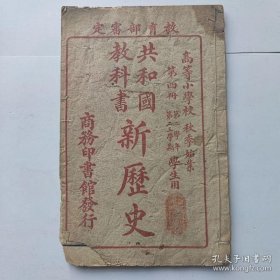 教育部審定
高等小學校 秋季始業
第四冊 第二學年 學生用
共和國
教科書
新歷史
商務印書館發行
孔夫子旧书网